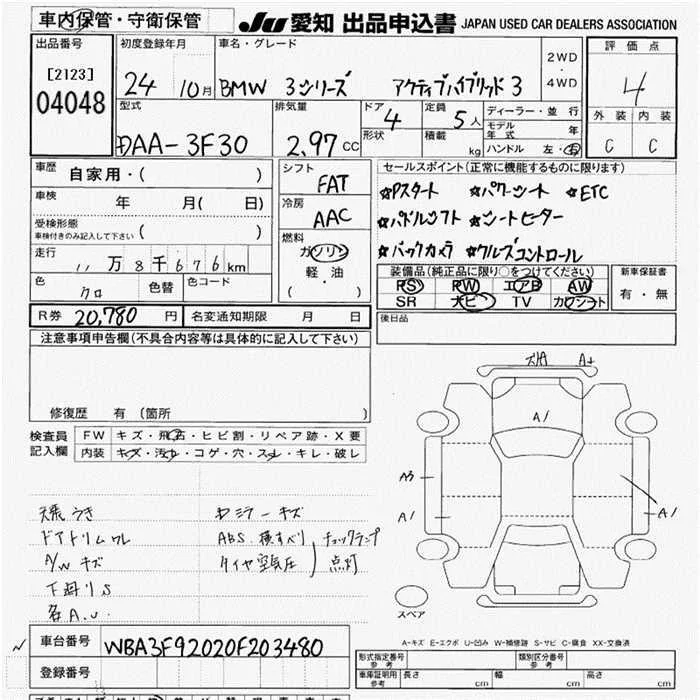 車内保管・守衛保管
JU 愛知 出品申込書 JAPAN USED CAR DEALERS ASSOCIATION
出品番号
[2123]
04048
初度登録年月
24 10月
車名・グレード
BMW 3シリーズ アクティブハイブリッド3
2WD
・
4WD
評価点
4
外装 内装
C C
型式
DAA-3F30
排気量
2.97 CC
ドア 4
形状
定員 5人
積載 kg
ディーラー・並行
モデル年式 年
ハンドル 左・右
車歴
自家用・( )
車検 年 月( 日)
受検形態
車検付きのみ記入して下さい ( )
走行
11万8千676km
色
クロ
色替
色コード
シフト
FAT
冷房
AAC
燃料
ガソリン
軽・油
( ・ )
セールスポイント(正常に機能するものに限ります)
☆Pスタート ☆パワーシート ☆ETC
☆パドルシフト ☆シートヒーター
☆バックカメラ ☆クルーズコントロール
装備品(純正品に限り○をつけてください)
PS PW エアB AW
SR ナビ TV カワシート
新車保証書
有・無
後日品
R券 20,780 円
名変通知期限 月 日
注意事項申告欄(不具合内容等は具体的に記入して下さい)
修復歴 有 (箇所 )
検査員記入欄
FW キズ・飛石・ヒビ割・リペア跡・X要
内装 キズ・汚れ・コゲ・穴・スレ・キレ・破レ
天張うき
ドアトリムワレ
A/Wキズ
下廻りS
各A.U.
ABS 横すべり チェックランプ
タイヤ空気圧 点灯
A1
A3
A1
A1
スペア
A-キズ E-エクボ U-凹み W-補修跡 S-サビ C-腐食 XX-交換済
車台番号 WBA3F92020F203480
登録番号
形式指定番号
参考
類別区分番号
参考
車庫証明用
参考
長さ cm 幅 cm 高さ cm